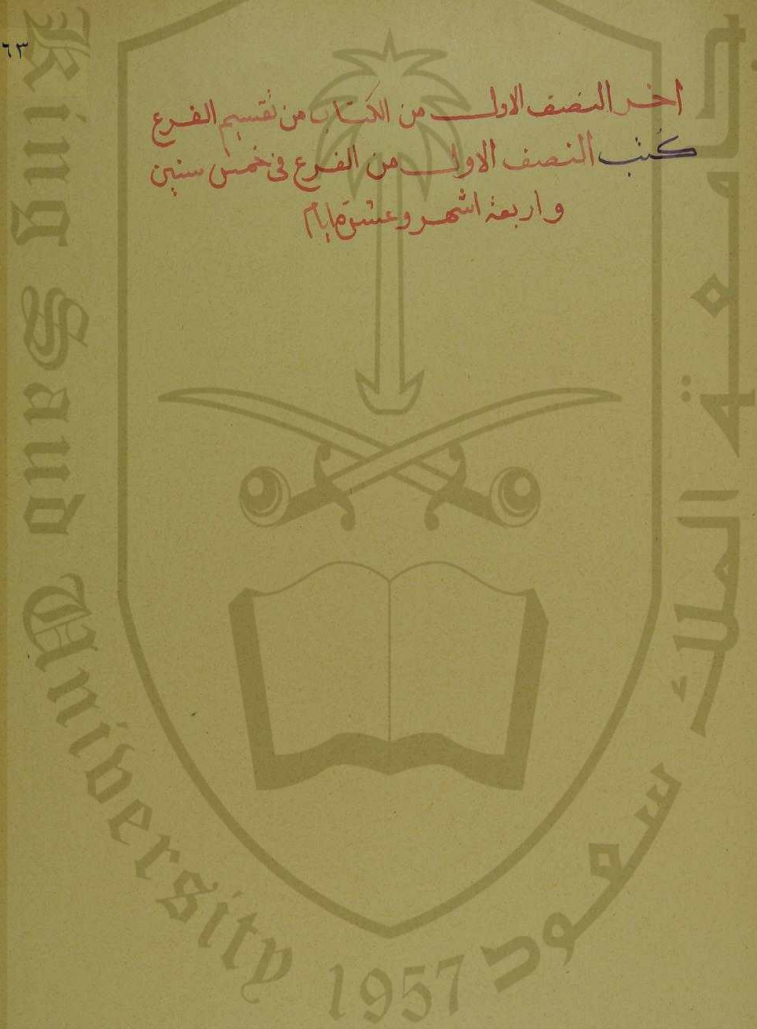 ٦٣
اخر النصف الاول من الكتاب من تقسيم الفرع
كتب النصف الاول من الفرع في خمس سنين
و اربعة اشهر وعشرة ايام
King Saud University 1957
جامعة الملك سعود